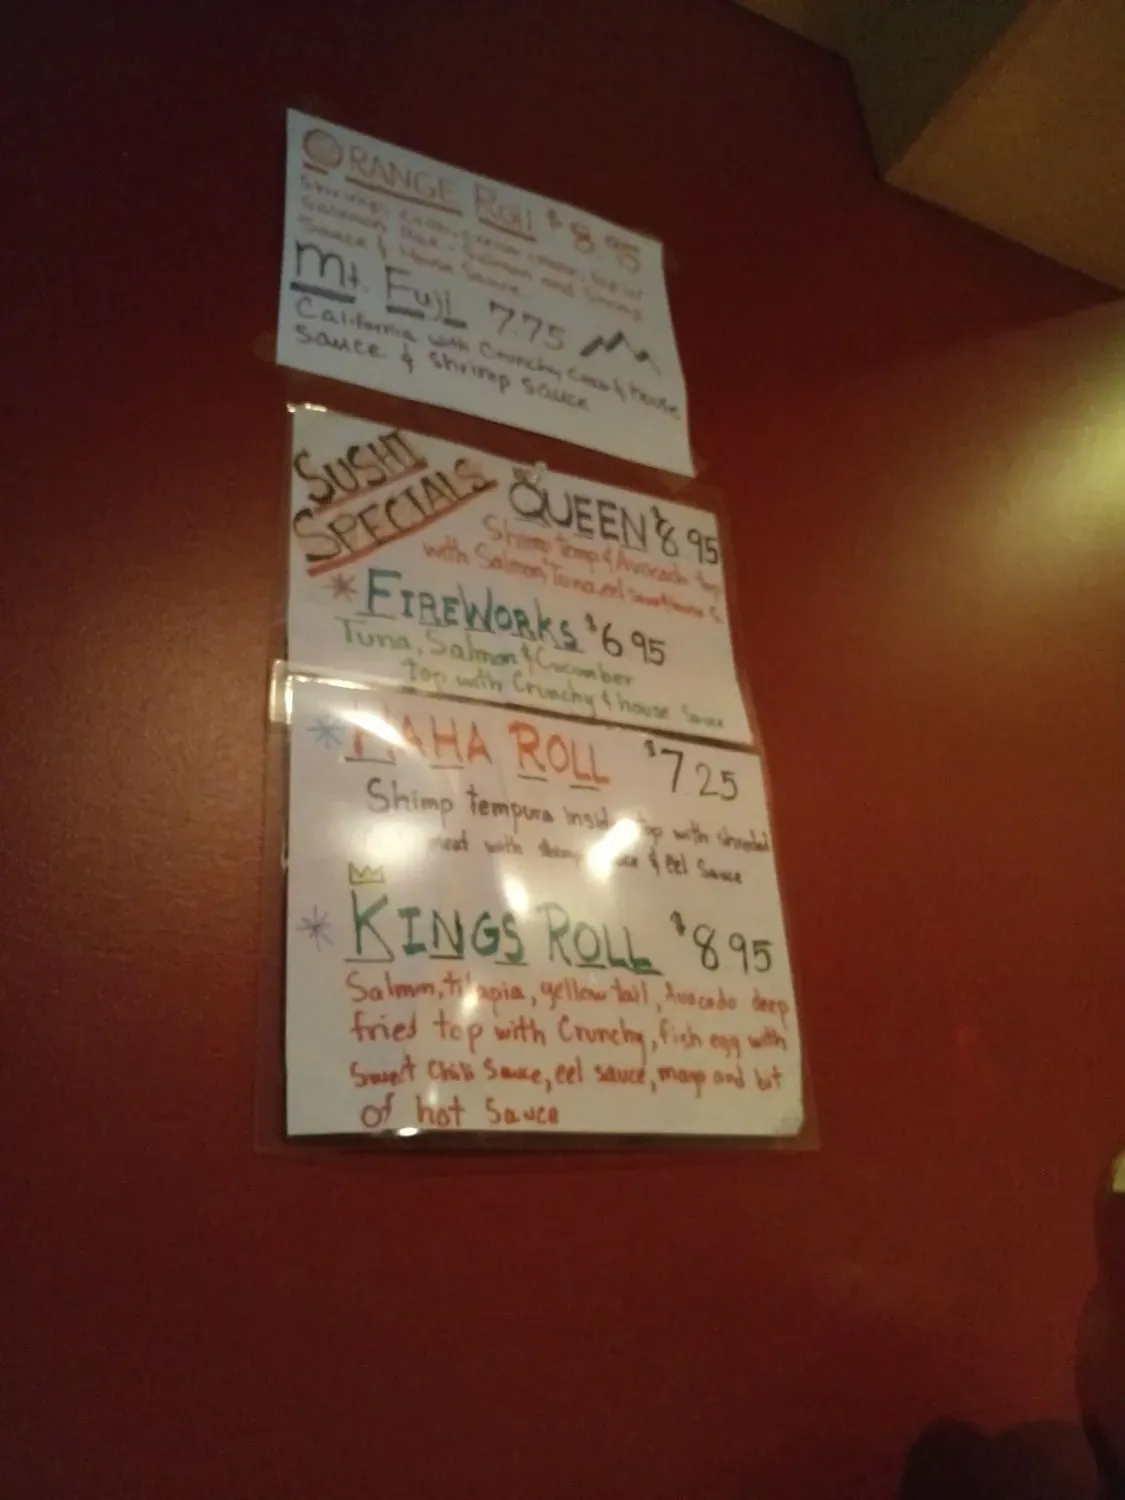 ORANGE ROLL $8.95
Shrimp,
Salmon and Shrimp
Sauce & House Sauce
Mt. Fuji 7.75
California with Crunchy Crab & House
Sauce & Shrimp Sauce
SUSHI
SPECIALS
QUEEN $8.95
Shimp temp & Avocado top
with Salmon, Tuna, eel sauce
* FIREWORKS $6.95
Tuna, Salmon & Cucumber
top with Crunchy & house Sauce
* HAHA ROLL $7.25
Shimp tempura inside top with shredded
meat with & eel Sauce
* KINGS ROLL $8.95
Salmon, tilapia, yellow tail, Avocado deep
fried top with Crunchy, fish egg with
Sweet Chili Sauce, eel sauce, mayo and bit
of hot Sauce